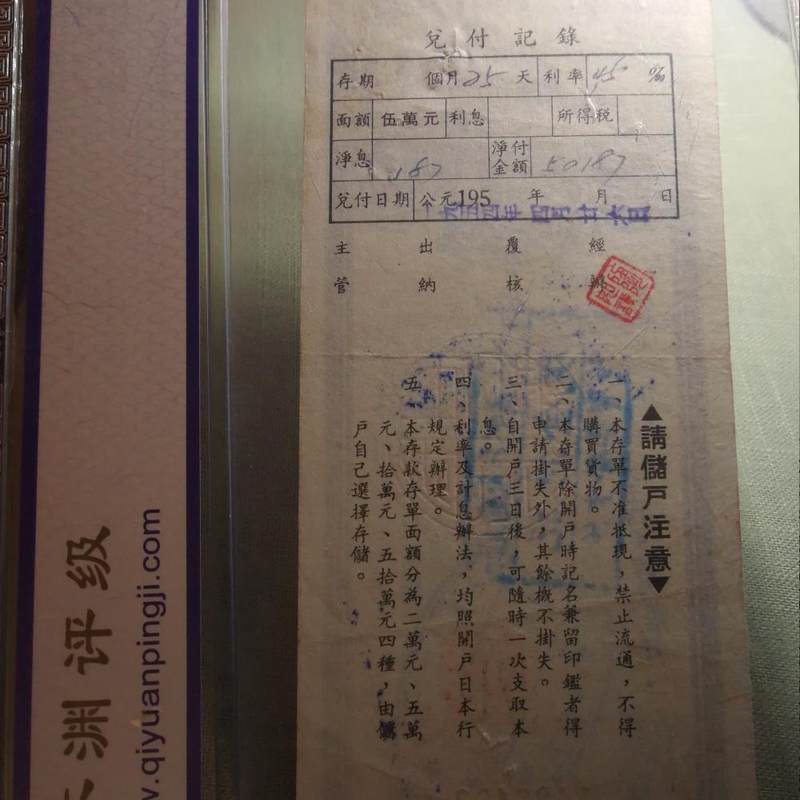 兌付記錄
存期 個月25天 利率 45 %
面額 伍萬元 利息 所得稅
淨息 187 淨付金額 50187
兌付日期 公元195 年 月 日
九五四年四月廿六日
主管 出納 覆核 經辦
▲請儲戶注意▼
一、本存單不准抵現，禁止流通，不得
購買貨物。
二、本存單除開戶時記名兼留印鑑者得
申請掛失外，其餘概不掛失。
三、自開戶三日後，可隨時一次支取本
息。
四、利率及計息辦法，均照開戶日本行
規定辦理。
五、本存款存單面額分為二萬元、五萬
元、拾萬元、五拾萬元四種，由儲
戶自己選擇存儲。
渊评级
w.qiyuanpingji.com